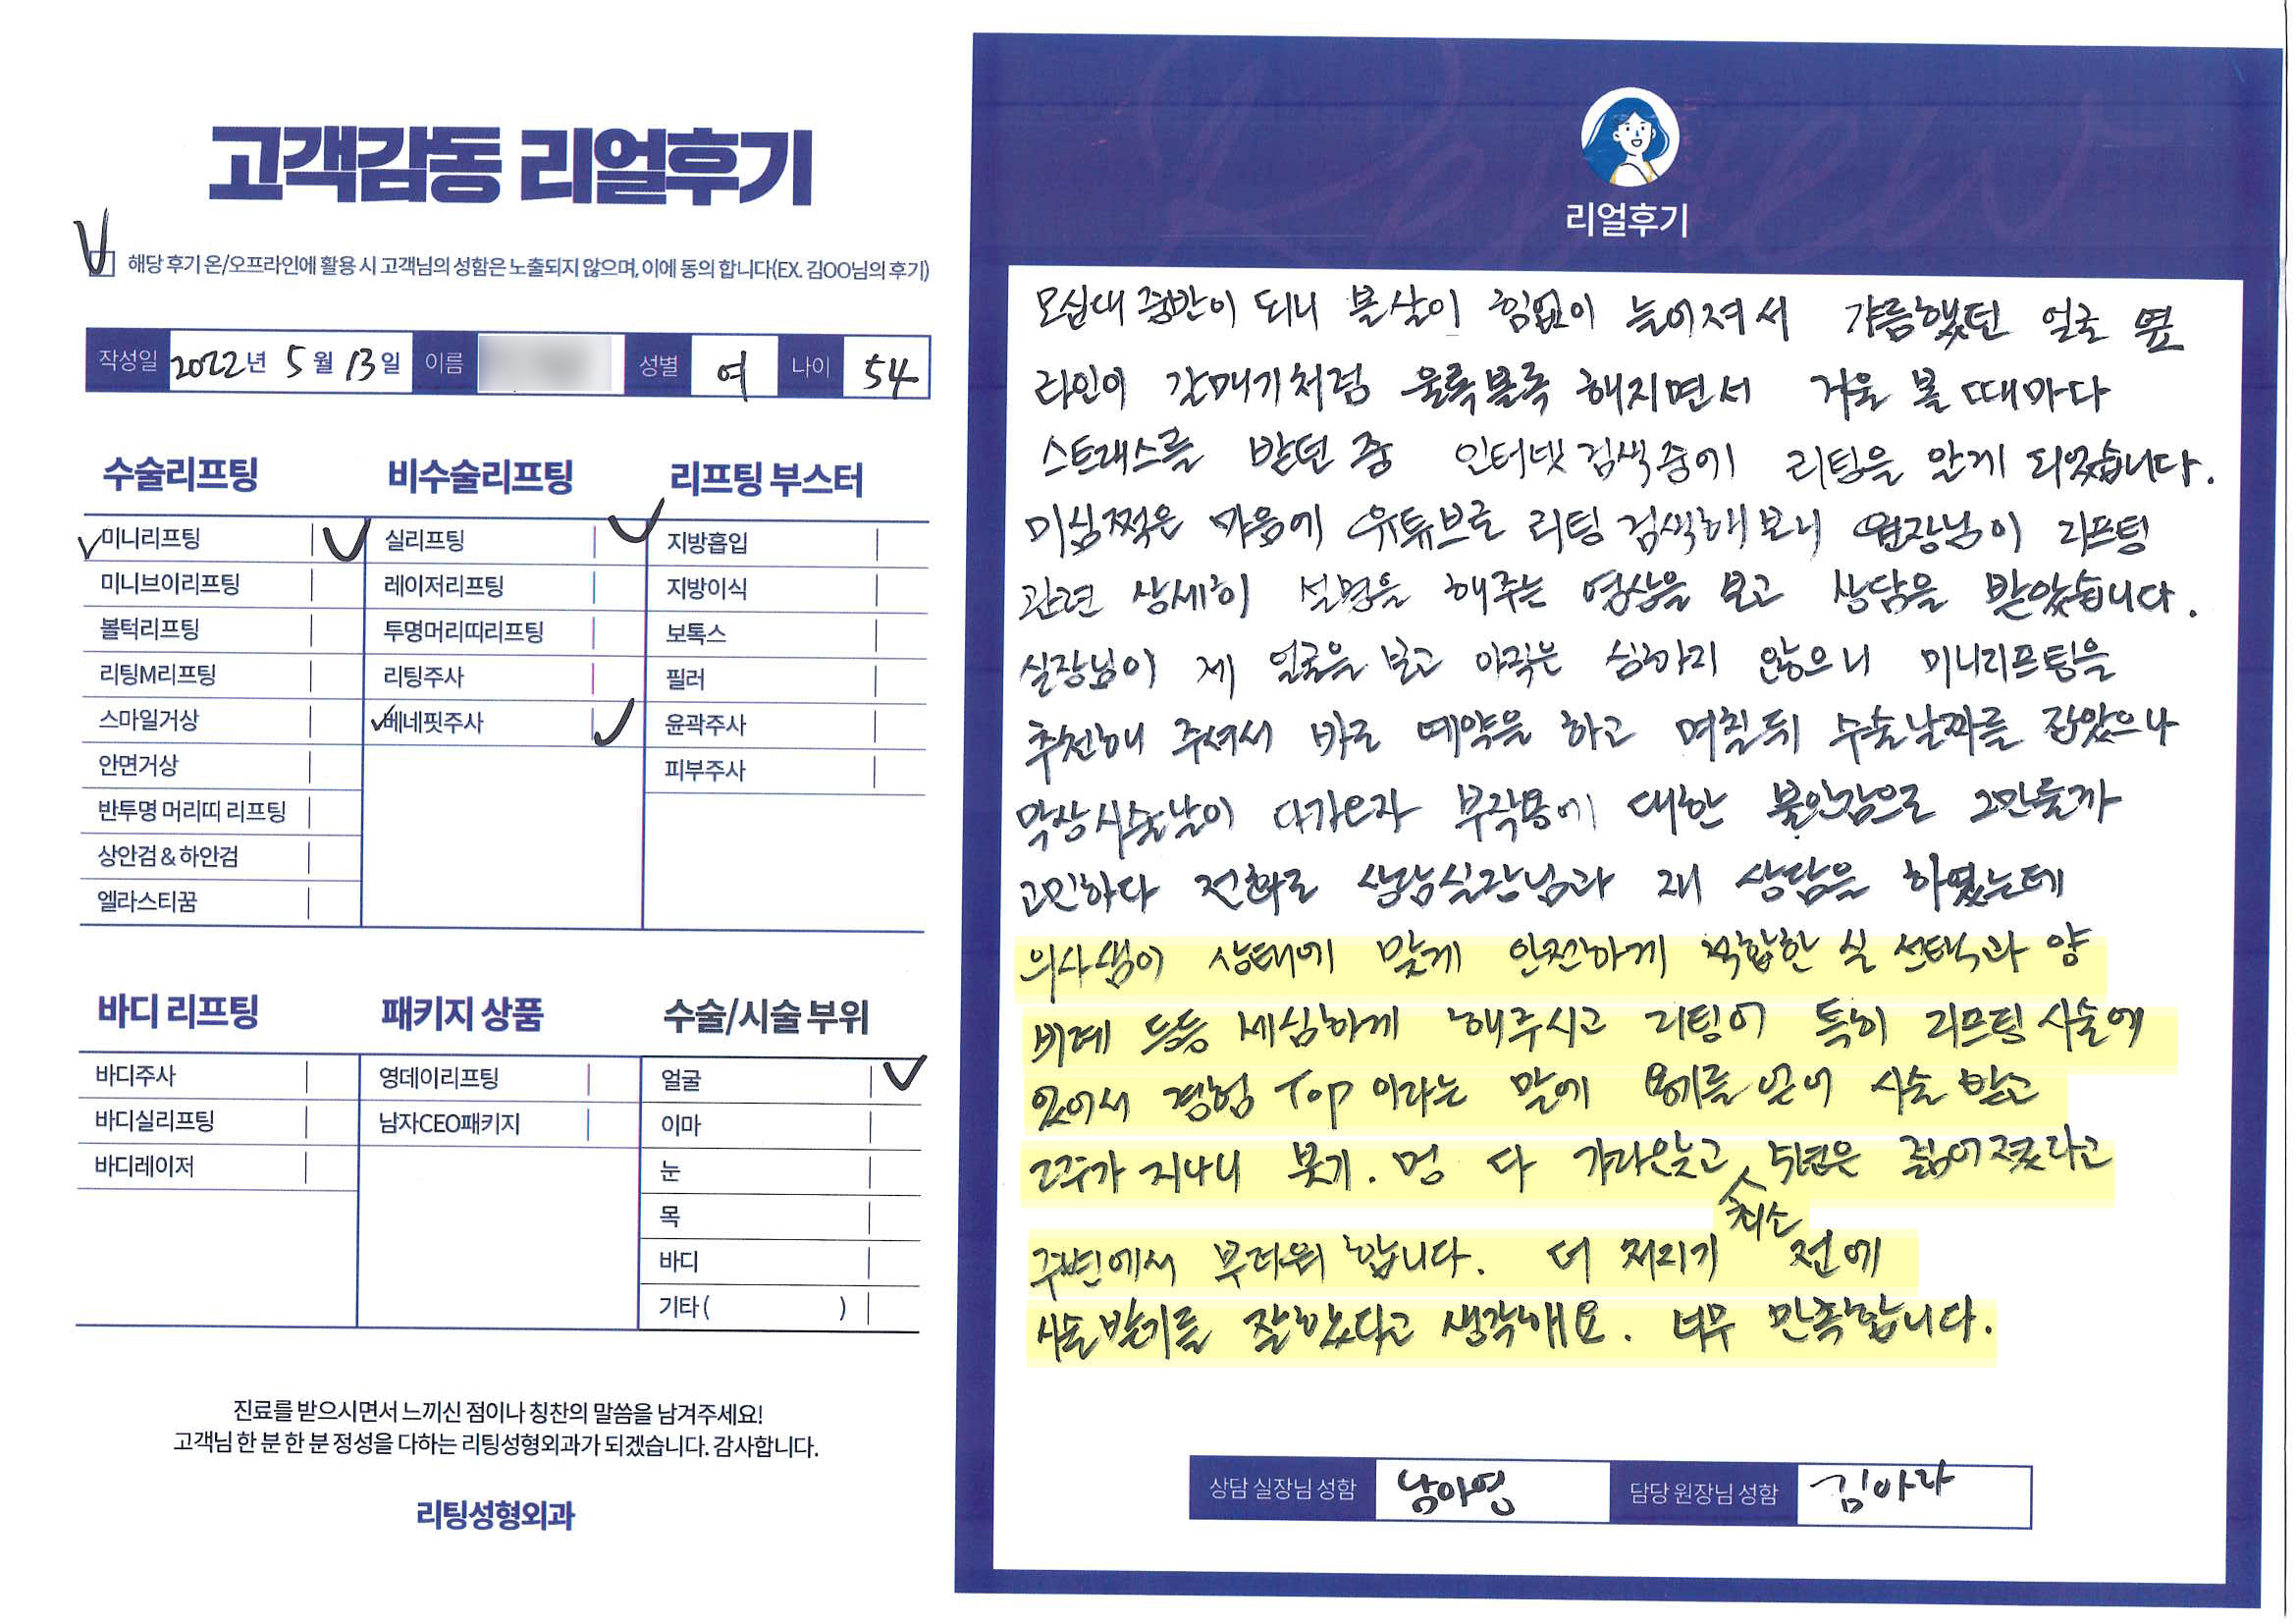 고객감동 리얼후기
해당 후기 온/오프라인에 활용 시 고객님의 성함은 노출되지 않으며, 이에 동의 합니다(EX. 김OO님의 후기)
작성일 2022년 5월 13일 이름 성별 여 나이 54
수술리프팅
미니리프팅
미니브이리프팅
볼턱리프팅
리팅M리프팅
스마일거상
안면거상
반투명 머리띠 리프팅
상안검 & 하안검
엘라스티꿈
비수술리프팅
실리프팅
레이저리프팅
투명머리띠리프팅
리팅주사
베네핏주사
리프팅 부스터
지방흡입
지방이식
보톡스
필러
윤곽주사
피부주사
바디 리프팅
바디주사
바디실리프팅
바디레이저
패키지 상품
영데이리프팅
남자CEO패키지
수술/시술 부위
얼굴
이마
눈
목
바디
기타 ( )
진료를 받으시면서 느끼신 점이나 칭찬의 말씀을 남겨주세요!
고객님 한 분 한 분 정성을 다하는 리팅성형외과가 되겠습니다. 감사합니다.
리팅성형외과
리얼후기
오십대 중반이 되니 볼살이 힘없이 늘어져서 갸름했던 얼굴 옆
라인이 갈매기처럼 울룩불룩 해지면서 거울 볼 때마다
스트래스를 받던 중 인터넷 검색중에 리팅을 알게 되었습니다.
미심쩍은 마음에 유튜브로 리팅 검색해보니 원장님이 리프팅
관련 상세히 설명을 해주는 영상을 보고 상담을 받았습니다.
실장님이 제 얼굴을 보고 아직은 심하지 않으니 미니리프팅을
추천해 주셔서 바로 예약을 하고 며칠뒤 수술날짜를 잡았으나
막상 시술날이 다가오자 부작용에 대한 불안감으로 그만둘까
고민하다 전화로 상담실장님과 재 상담을 하였는데
의사샘이 상태에 맞게 안전하게 적합한 실 선택과 양
비례 등등 세심하게 해주시고 리팅이 특히 리프팅 시술에
있어서 경험 Top 이라는 말에 용기를 얻어 시술 받고
2주가 지나니 붓기. 멍 다 가라앉고 최소 5년은 젊어졌다고
주변에서 부러워 합니다. 더 처지기 전에
시술받기를 잘했다고 생각해요. 너무 만족합니다.
상담 실장님 성함 남아영 담당 원장님 성함 김아라